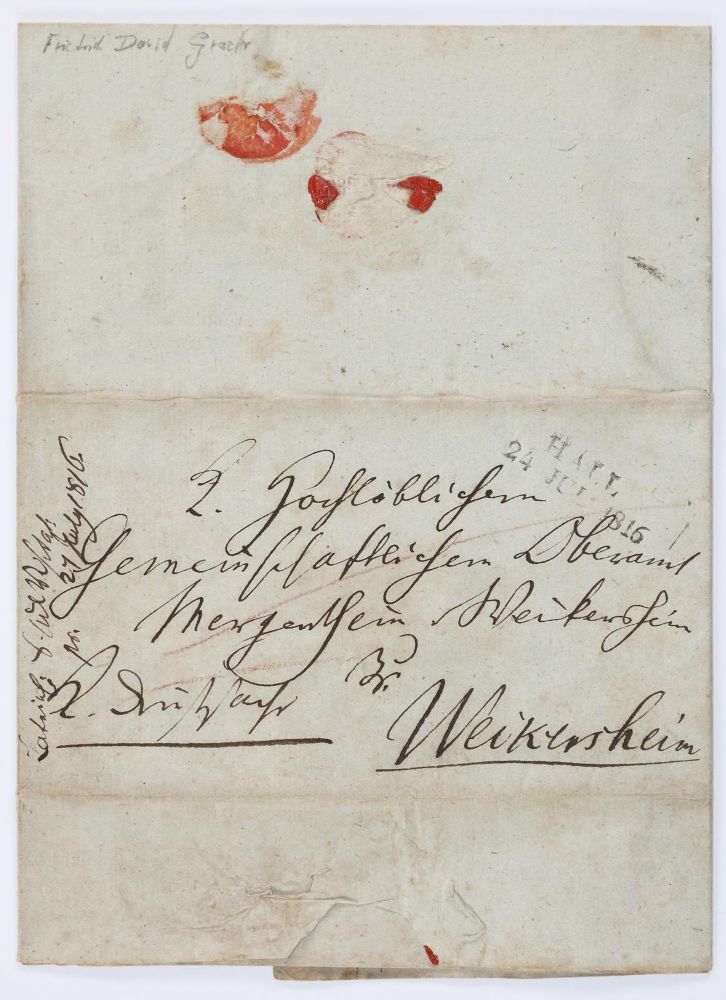 Friedrich David Graeter
HALL
24 JUL 1816
K. Hochlöblichem
Gemeinschaftlichem Oberamt
Mergentheim Weikersheim
Zu
K. Dienstsache
Weikersheim
27 July 1816